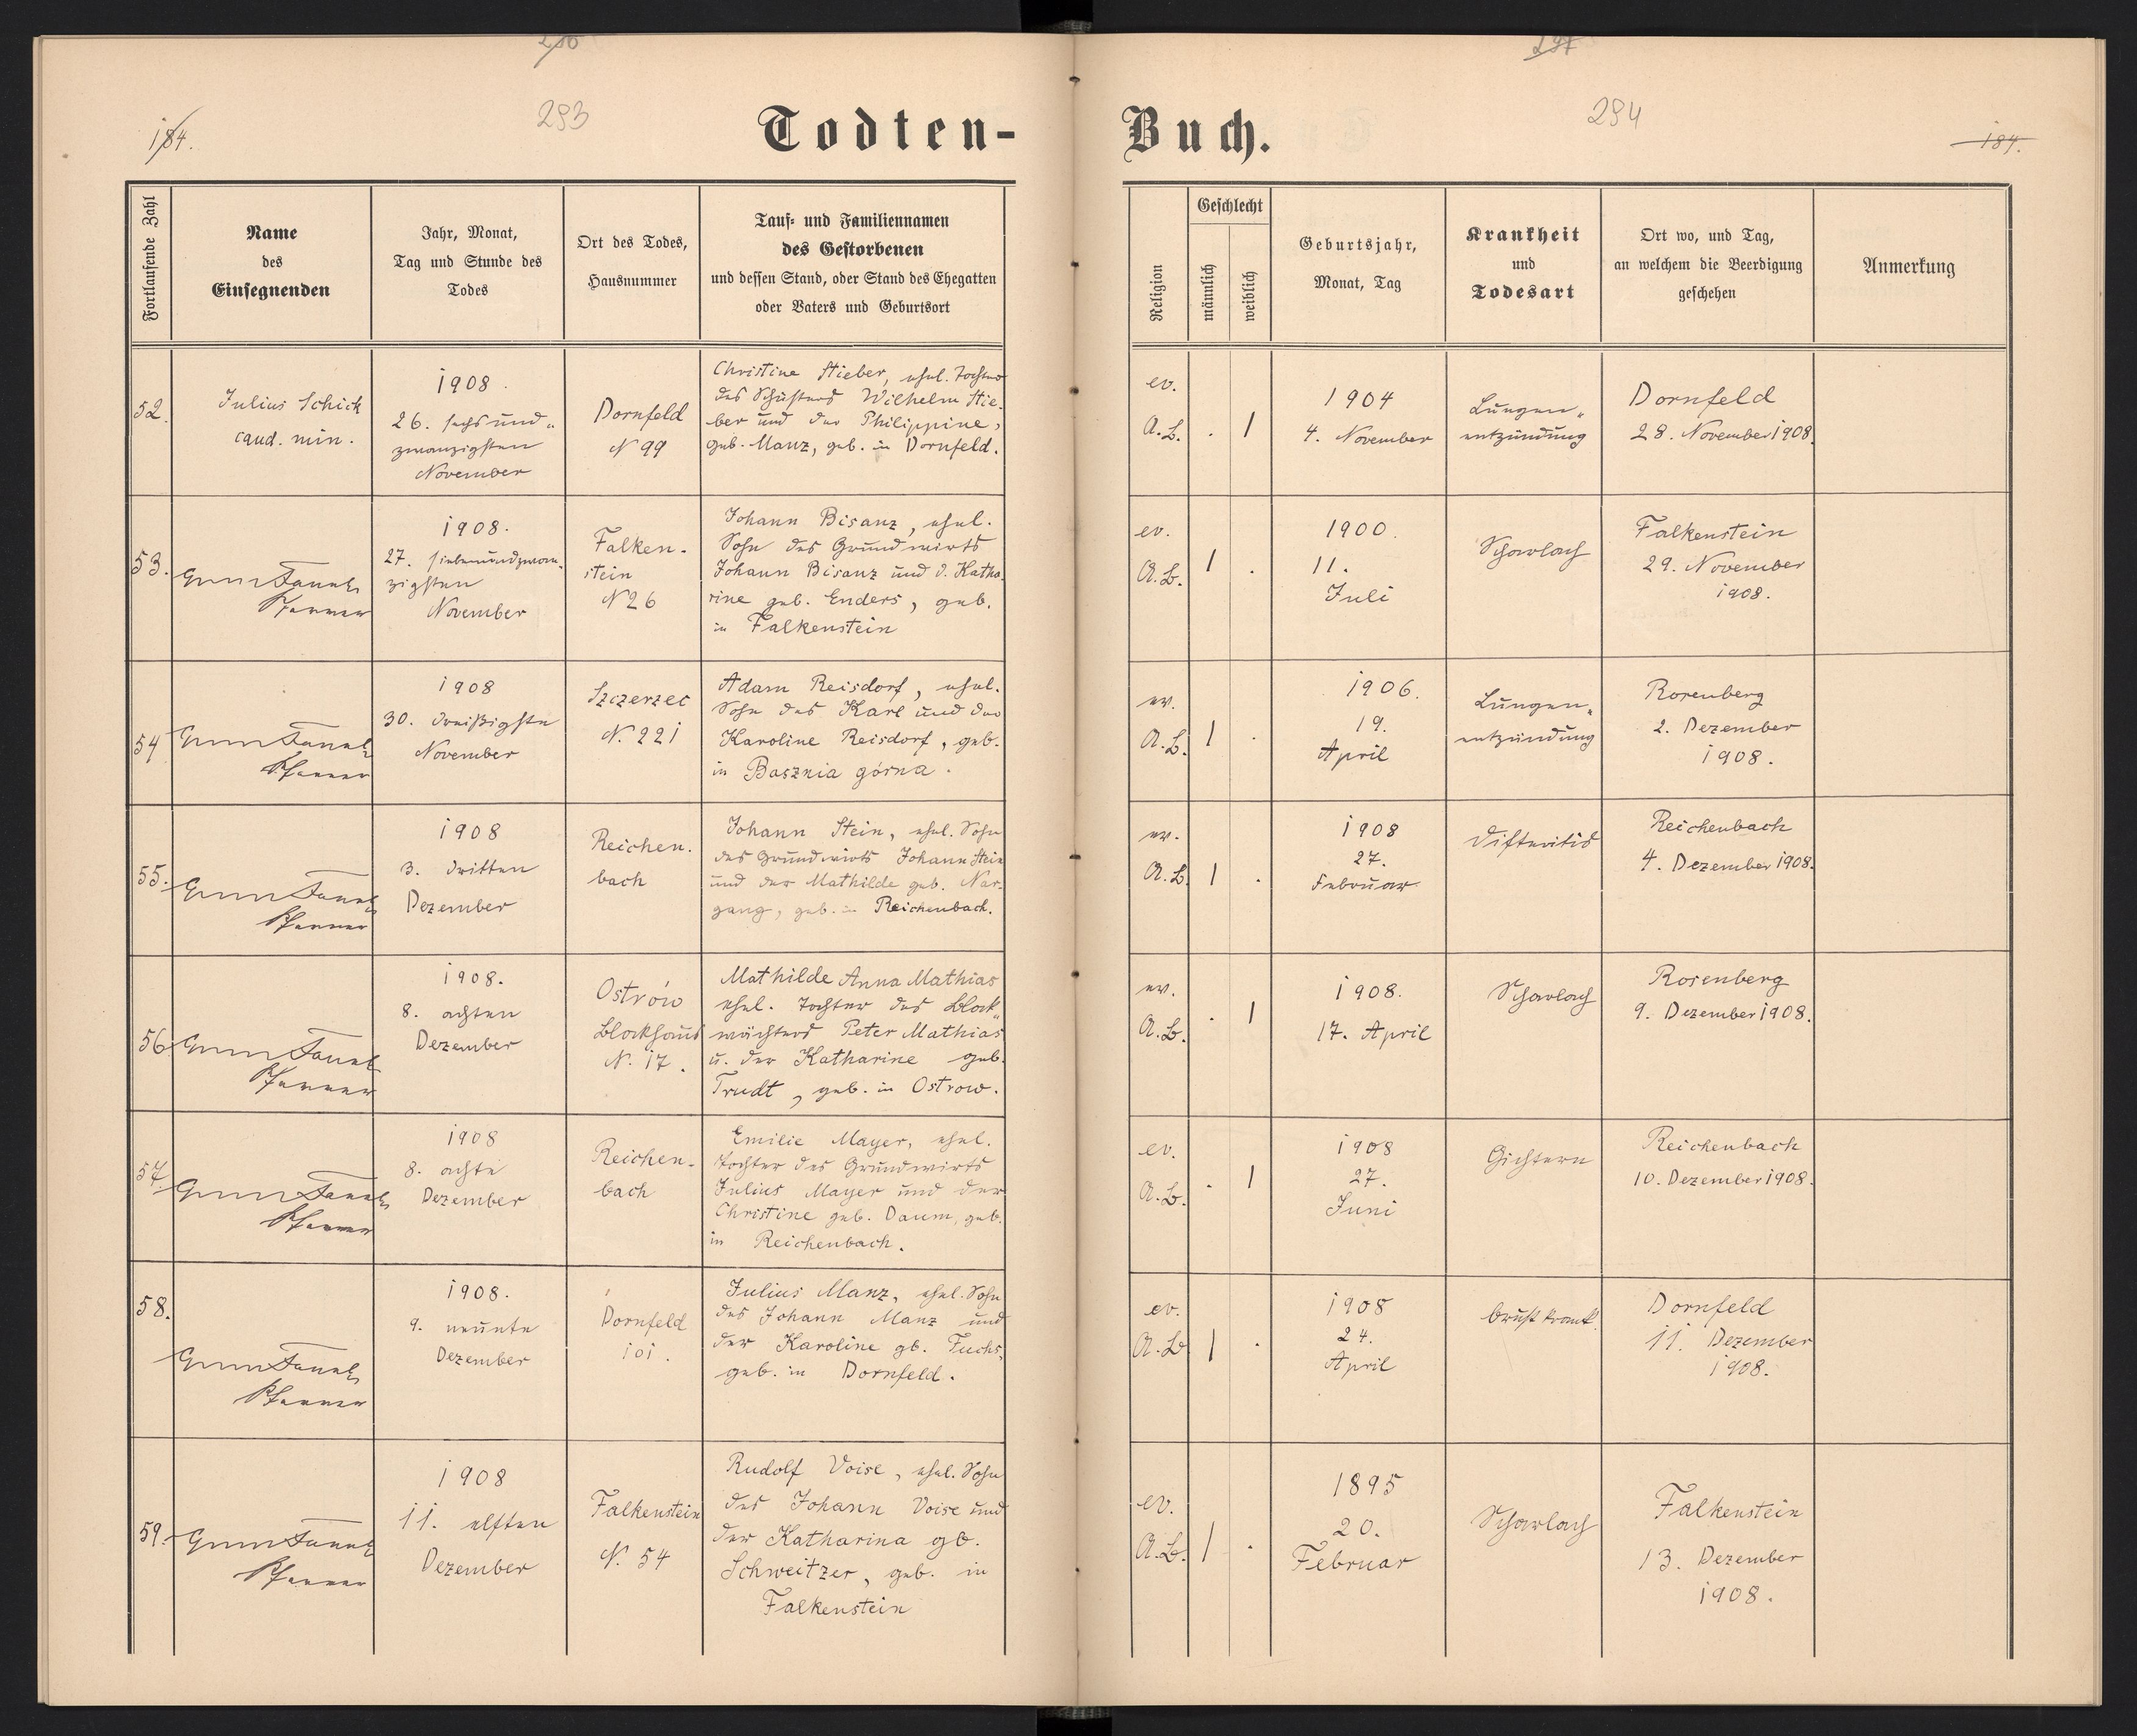 184.
293
Todten-
Fortlaufende Zahl
Name
des
Einsegnenden
Jahr, Monat,
Tag und Stunde des
Todes
Ort des Todes,
Hausnummer
Tauf- und Familiennamen
des Gestorbenen
und dessen Stand, oder Stand des Ehegatten
oder Vaters und Geburtsort
52.
Julius Schick
cand. min.
1908.
26. sechsund-
zwanzigsten
November
Dornfeld
N 99
Christine Stieber, ehel. Tochter
des Schusters Wilhelm Stie-
ber und der Philippine,
geb. Manz, geb. in Dornfeld.
53.
Pfarrer
1908.
27. siebenundzwan-
zigsten
November
Falken-
stein
N 26
Johann Bisanz, ehel.
Sohn des Grundwirts
Johann Bisanz und d. Katha-
rine geb. Enders, geb.
in Falkenstein
54
Pfarrer
1908
30. dreißigste
November
Szczerzec
N. 221
Adam Reisdorf, ehel.
Sohn des Karl und der
Karoline Reisdorf, geb.
in Basznia górna.
55.
Pfarrer
1908
3. dritten
Dezember
Reichen-
bach
Johann Stein, ehel. Sohn
des Grundwirts Johann Stein
und der Mathilde geb. Nar-
gang, geb. in Reichenbach.
56
Pfarrer
1908.
8. achten
Dezember
Ostrów
Blockhaus
N. 17.
Mathilde Anna Mathias
ehel. Tochter des Block-
wächters Peter Mathias
u. der Katharine geb.
Trudt, geb. in Ostrow.
57.
Pfarrer
1908
8. achte
Dezember
Reichen-
bach
Emilie Mayer, ehel.
Tochter des Grundwirts
Julius Mayer und der
Christine geb. Daum, geb.
in Reichenbach.
58.
Pfarrer
1908.
9. neunte
Dezember
Dornfeld
101.
Julius Manz, ehel. Sohn
des Johann Manz und
der Karoline gb. Fuchs,
geb. in Dornfeld.
59.
Pfarrer
1908
11. elften
Dezember
Falkenstein
N. 54
Rudolf Voise, ehel. Sohn
des Johann Voise und
der Katharina gb.
Schweitzer, geb. in
Falkenstein
294
184.
Buch.
Religion
Geschlecht
männlich
weiblich
Geburtsjahr,
Monat, Tag
Krankheit
und
Todesart
Ort wo, und Tag,
an welchem die Beerdigung
geschehen
Anmerkung
ev.
A.B. . 1
1904
4. November
Lungen-
entzündung
Dornfeld
28. November 1908.
ev.
A.B. 1 .
1900.
11.
Juli
Scharlach
Falkenstein
29. November
1908.
ev.
A.B. 1 .
1906.
19.
April
Lungen-
entzündung
Rosenberg
2. Dezember
1908.
ev.
A.B. 1 .
1908
27.
Februar
Difteritis
Reichenbach
4. Dezember 1908.
ev.
A.B. . 1
1908.
17. April
Scharlach
Rosenberg
9. Dezember 1908.
ev.
A.B. . 1
1908
27.
Juni
Gichtern
Reichenbach
10. Dezember 1908.
ev.
A.B. 1 .
1908
24.
April
brustkrank.
Dornfeld
11. Dezember
1908.
ev.
A.B. 1 .
1895
20.
Februar
Scharlach
Falkenstein
13. Dezember
1908.